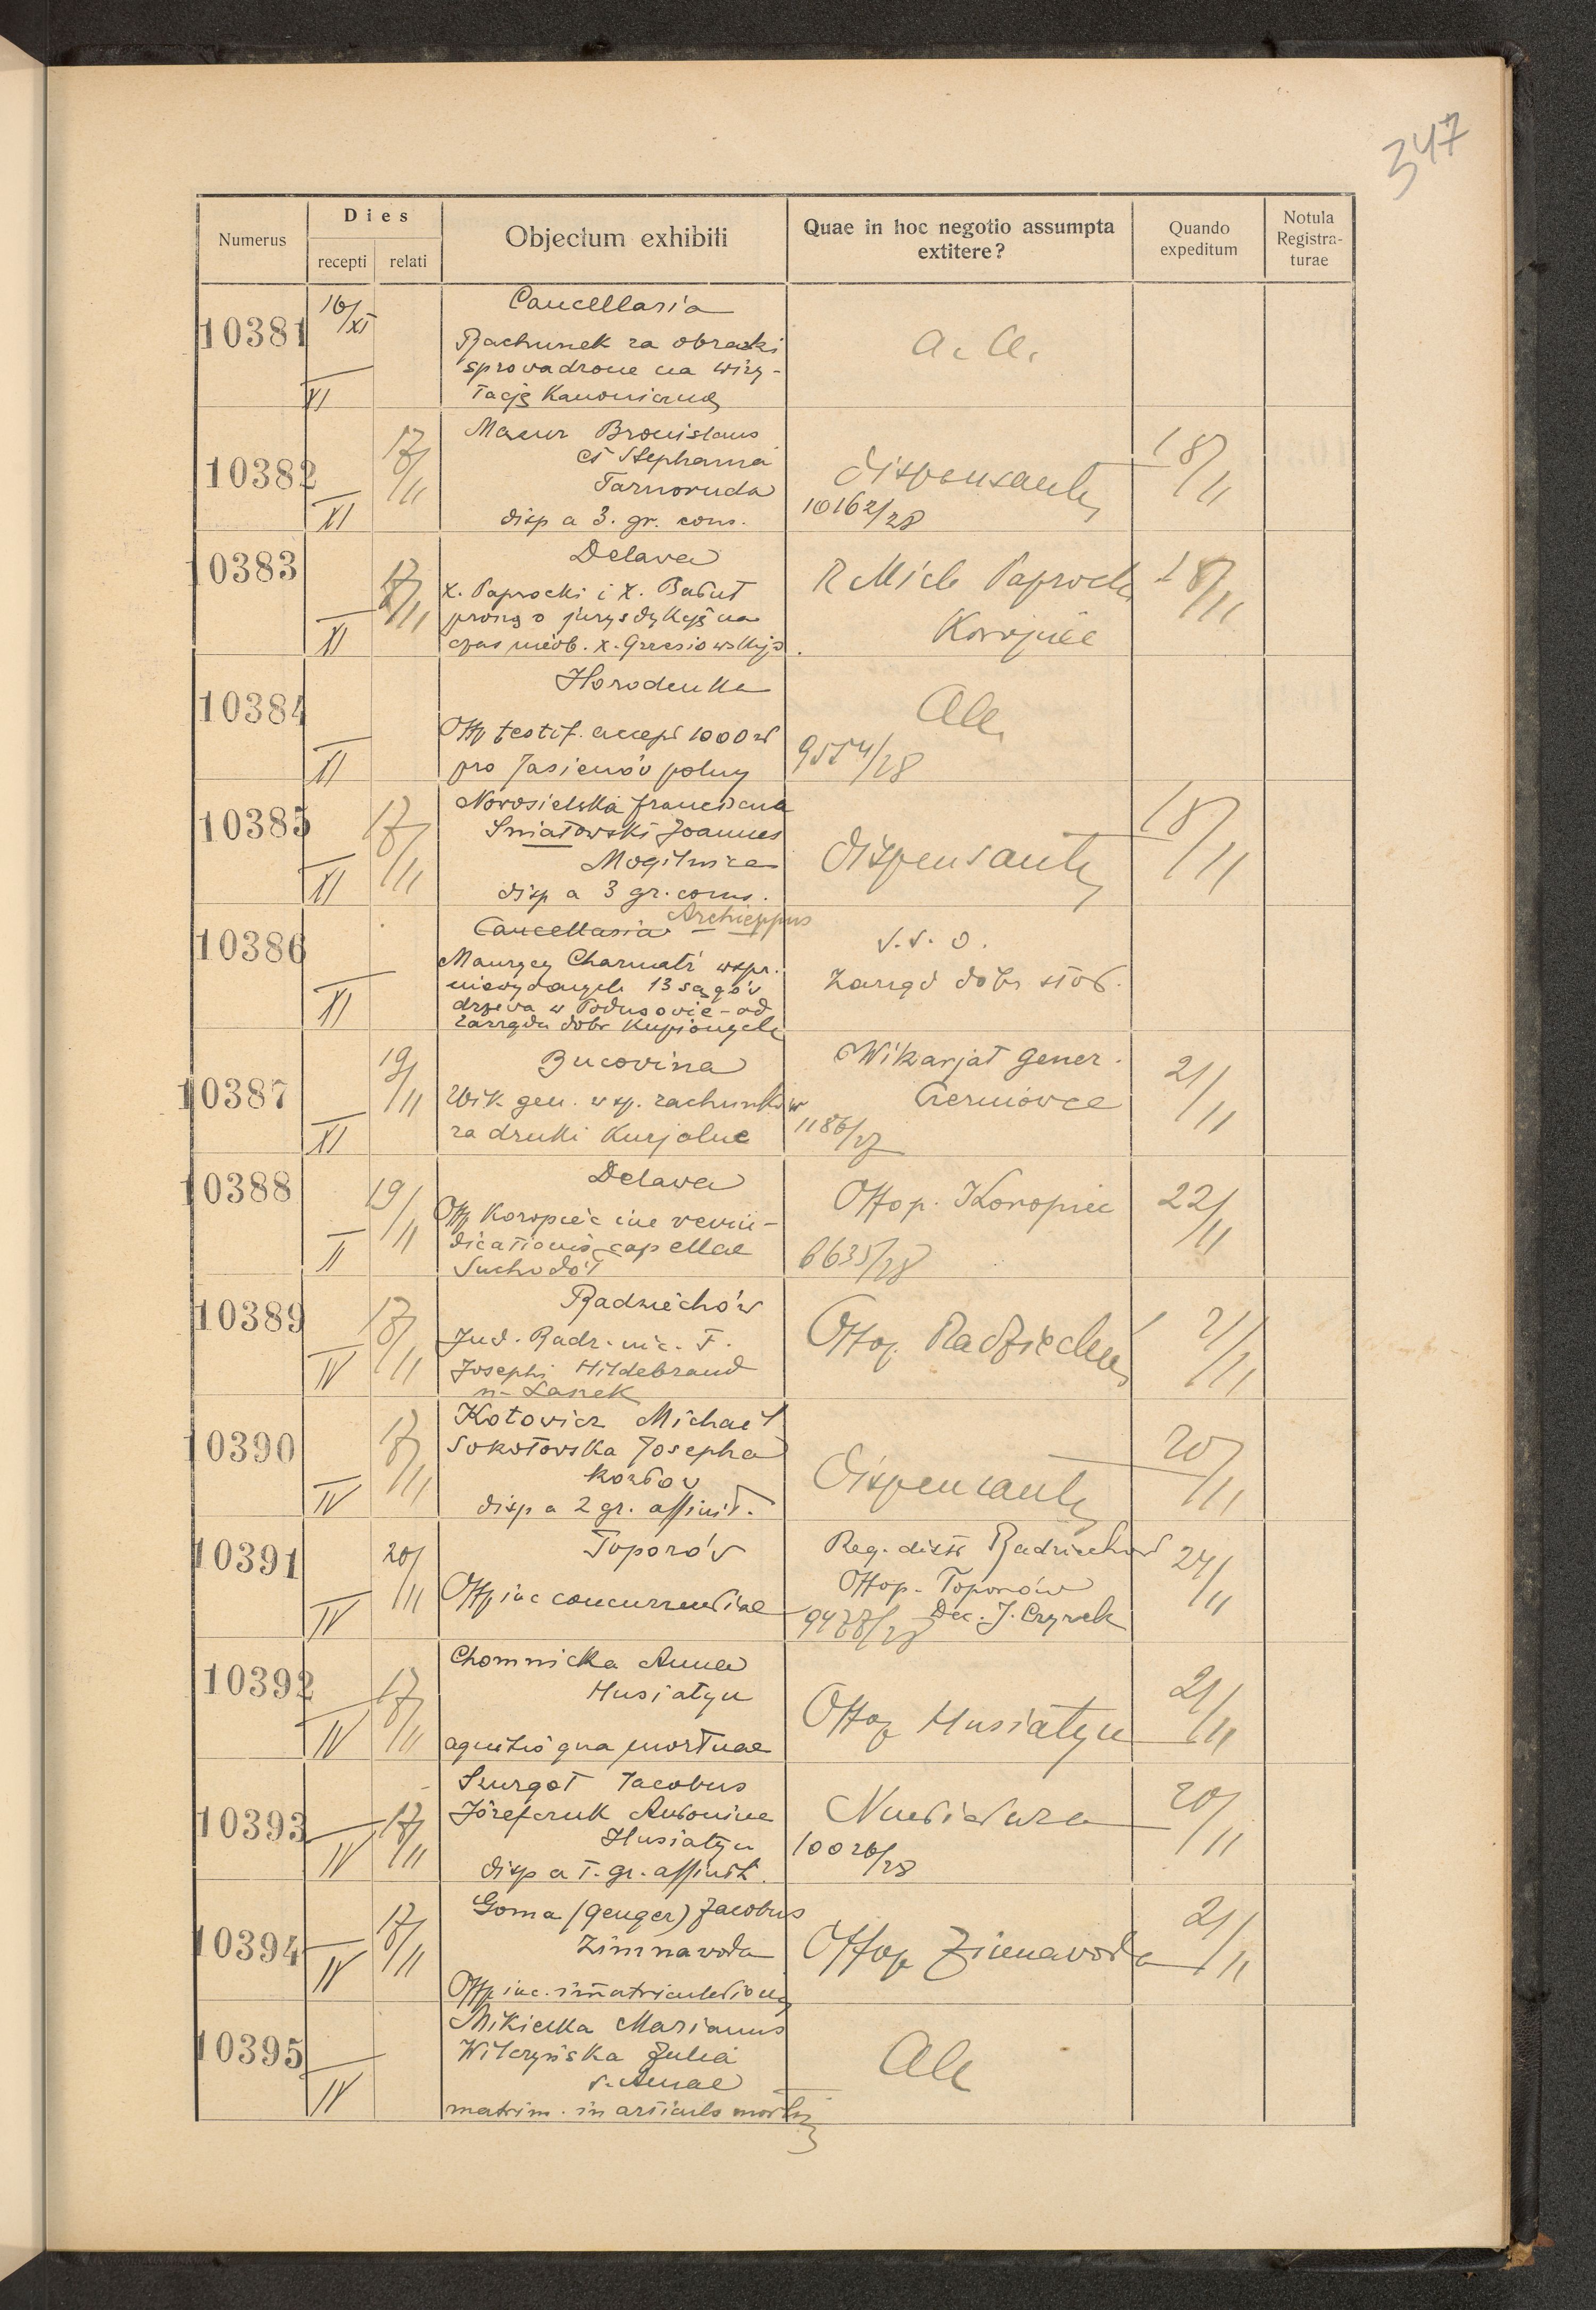 347
Numerus
Dies
recepti
relati
Objectum exhibiti
Quae in hoc negotio assumpta
extitere?
Quando
expeditum
Notula
Registra-
turae
10381
16/XI
XI
Cancellaria
Rachunek za obrazki
sprowadzone na wizy-
tację Kanoniczną
a. a.
10382
17/11
XI
Mazur Bronislaus
et Stephania
Tarnoruda
disp a 3. gr. cons.
dispensantur
10162/28
18/11
10383
17/11
XI
Delawa
X. Paprocki i X. Babut
proszą o jurysdykcję na
czas nieob. x. Grzesiowskiego.
R Mich Paprocki
Koropiec
18/11
10384
XI
Horodenka
Offp testif. accepi 1000 zł
pro Jasienów polny
Aa
9554/28
10385
17/11
XI
Nowosielska Francisca
Śniatowski Joannes
Mogilnica
disp a 3 gr. cons.
dispensantur
18/11
10386
XI
Cancellaria Archieppus
Maurycy Charmatz wspr.
niewydanych 13 sągów
drzewa w Podusowie - od
Zarządu dóbr Kupionych
s. s. o.
Zarząd dóbr stoł.
10387
19/11
XI
Bucovina
Wik. gen. w sp. rachunków
za druki Kurjalne
Wikarjat Gener.
Czerniowce
1186/27
21/11
10388
19/11
II
Delawa
Offp Koropiec inc vevin-
dicationis capellae
Suchodół
Offop. Koropiec
6635/28
22/11
10389
17/11
IV
Radziechów
Jud. Radz. inc. F.
Josephi Hildebrand
n- Łanek
Offop. Radziechów
21/11
10390
17/11
IV
Kotowicz Michael
Sokołowska Josepha
Kozłów
disp a 2 gr. affinit.
Dispensantur
20/11
10391
20/11
IV
Toporów
Offp inc concurrentiae
Reg. distr Radziechów
Offop. Toporów
9478/28 Dec. J. Czyrek
24/11
10392
17/11
IV
Chomnicka Anna
Husiatyn
agnitio qua mortuae
Offop Husiatyn
21/11
10393
17/11
IV
Szurgot Jacobus
Józefczuk Antonina
Husiatyn
disp a I. gr. affinit.
Nuntiatura
10026/28
20/11
10394
17/11
IV
Goma (Genger) Jacobus
Zimnawoda
Offp inc. immatriculationis
Offop Zimnawoda
21/11
10395
IV
Mikietka Marianus
Wilczyńska Julia
s. Annae
matrim. in articulo mortis
Aa